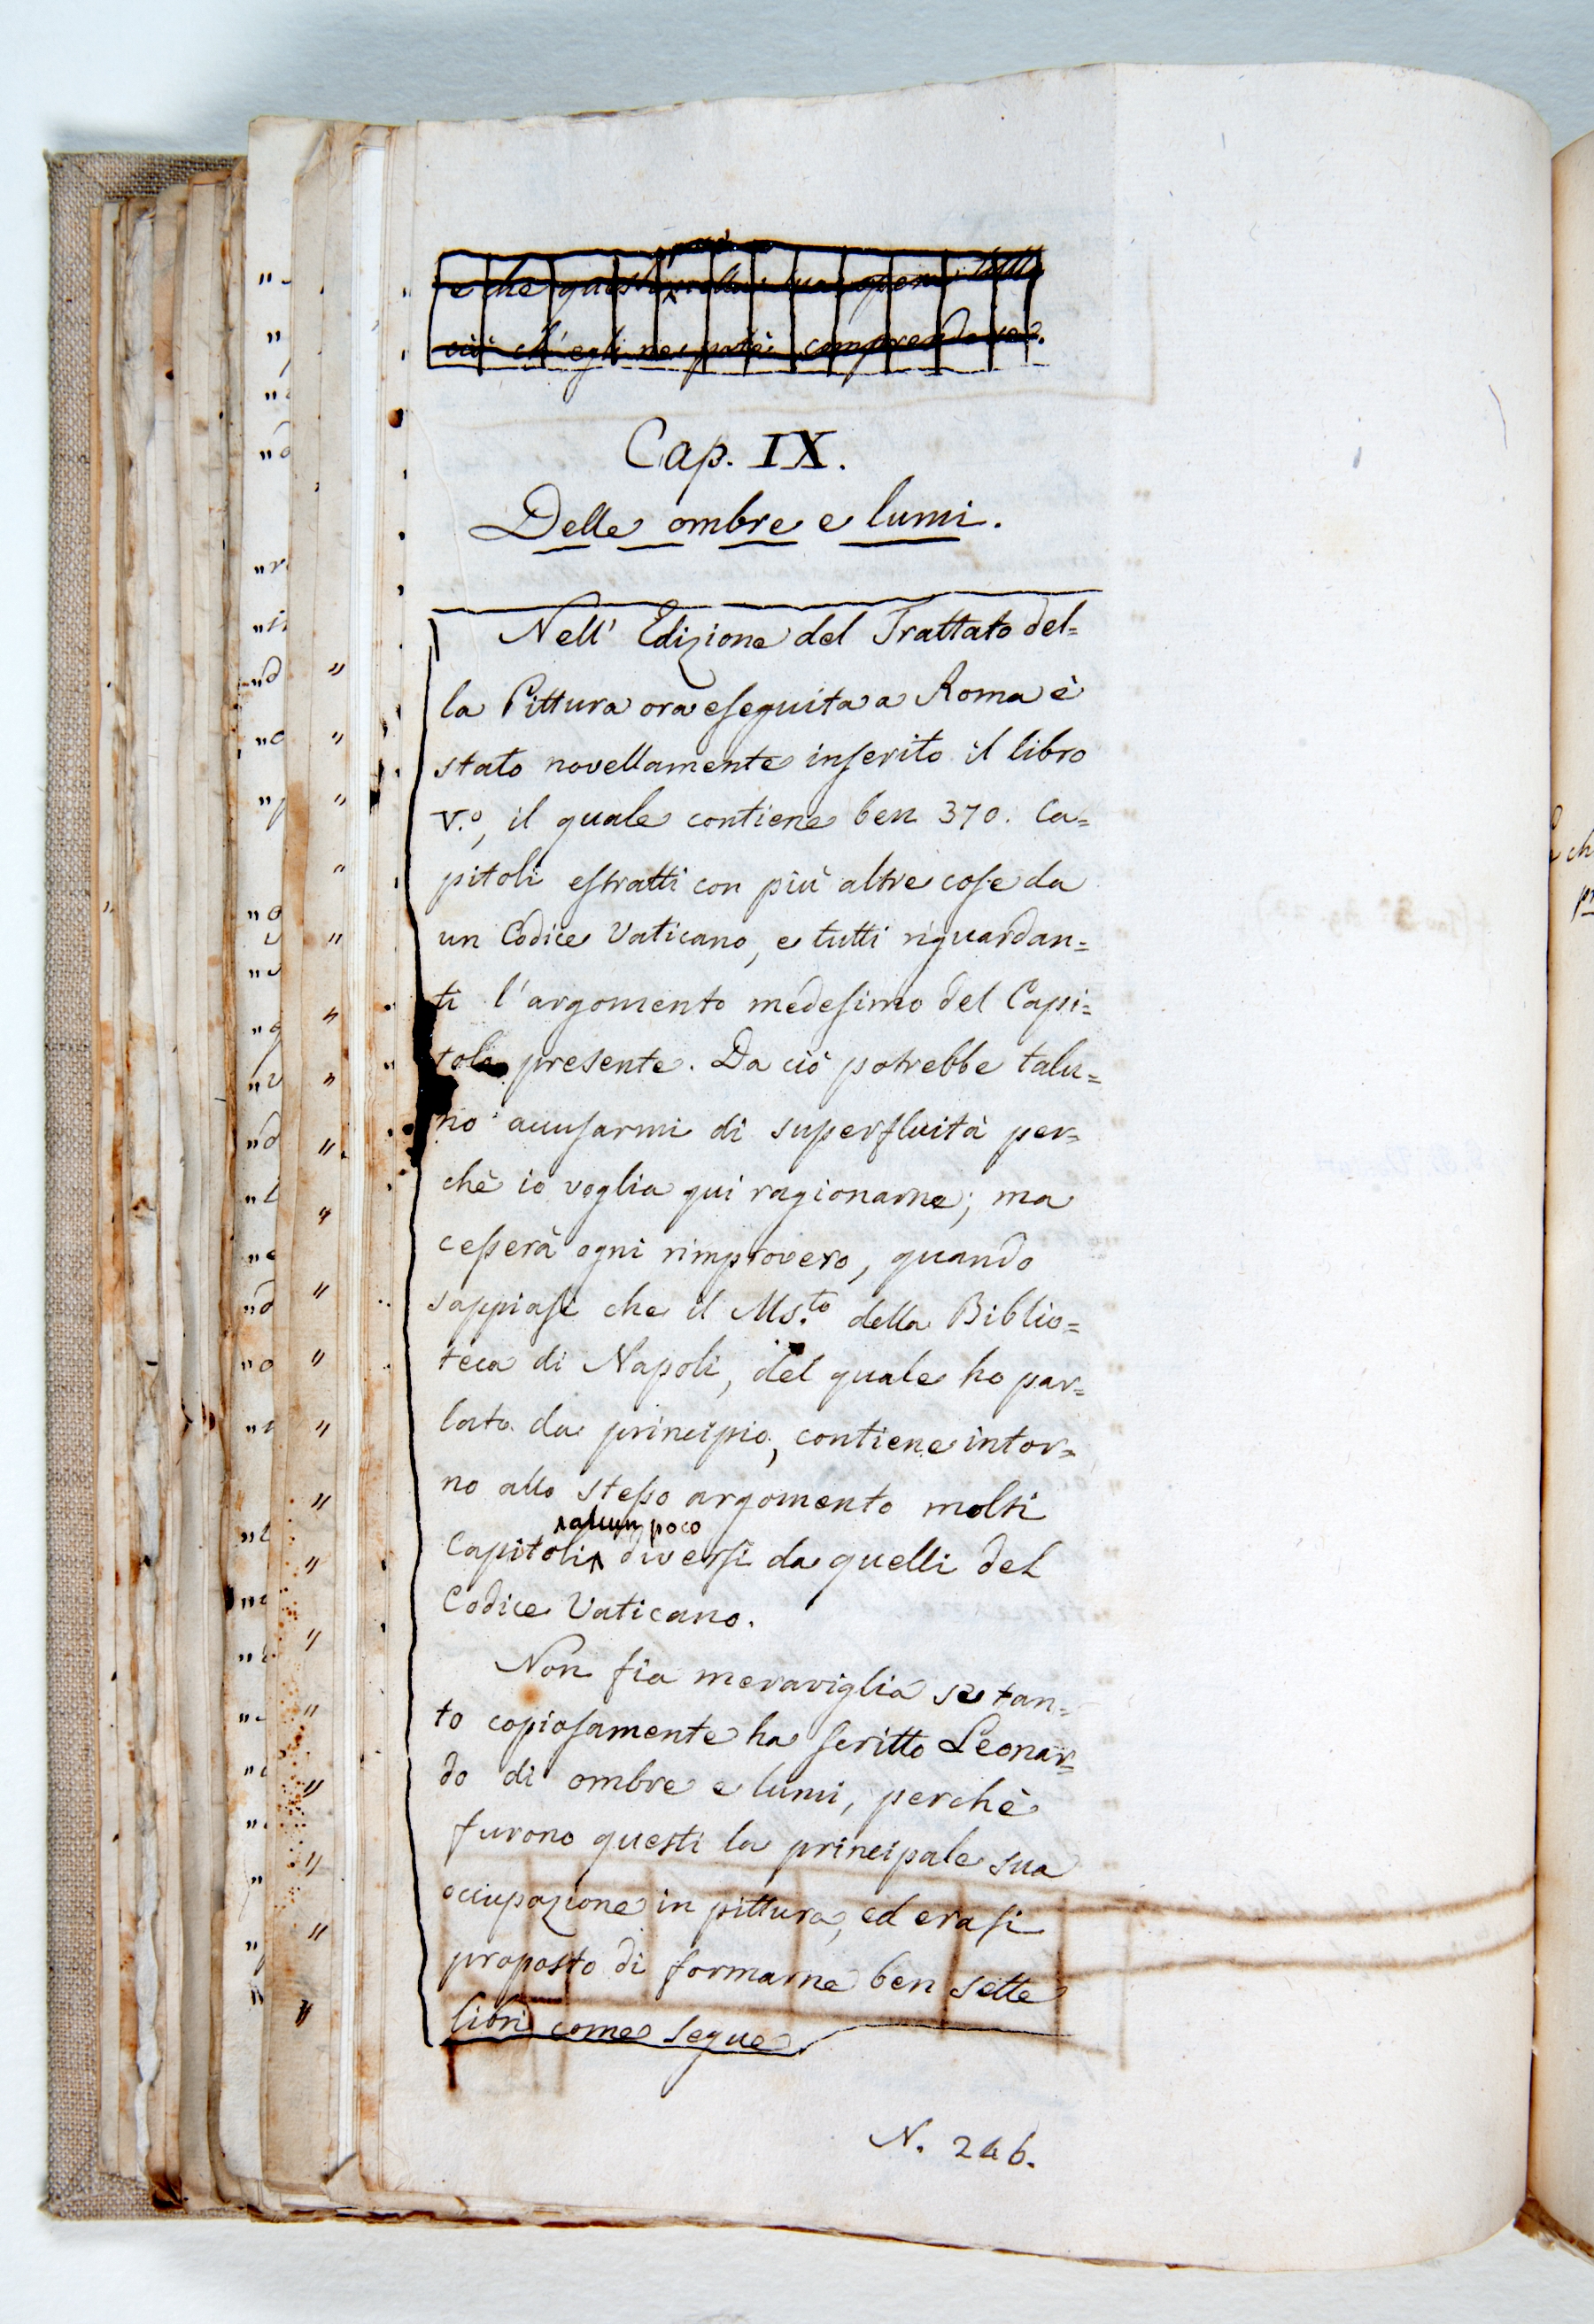 e che questi nella sua opera tutto
ciò ch'egli ne potè comprendere.
Cap. IX.
Delle ombre e lumi.
Nell' Edizione del Trattato del=
la Pittura ora eseguita a Roma è
stato novellamente inserito il libro
V.º, il quale contiene ben 370. Ca=
pitoli estratti con più altre cose da
un Codice Vaticano, e tutti riguardan=
ti l'argomento medesimo del Capi=
tolo presente. Da ciò potrebbe talu=
no accusarmi di superfluità per=
chè io voglia qui ragionarne; ma
cesserà ogni rimprovero, quando
sappiasi che il Ms.to della Biblio=
teca di Napoli, del quale ho par=
lato da principio, contiene intor=
no allo stesso argomento molti
alcun poco
Capitoli diversi da quelli del
Codice Vaticano.
Non fia meraviglia se tan=
to copiosamente ha scritto Leonar=
do di ombre e lumi, perchè
furono questi la principale sua
occupazione in pittura, ed erasi
proposto di formarne ben sette
libri come segue
N. 246.